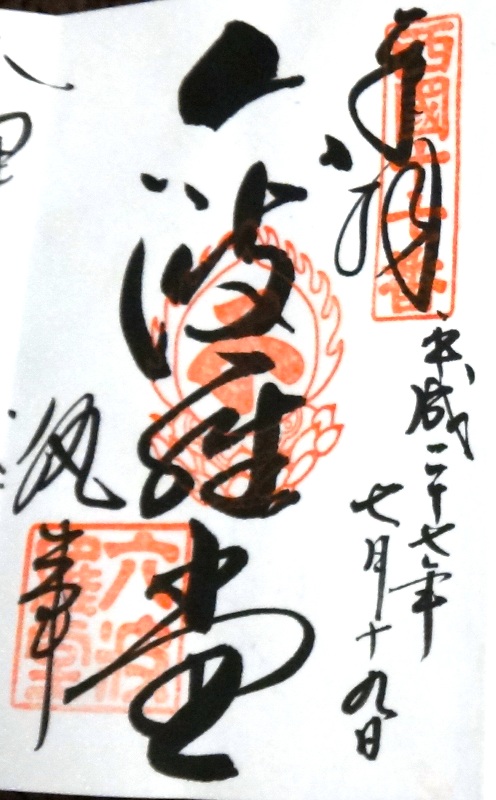 奉拝
西國十七番
平成二十七年
七月十九日
六波羅堂
六波羅蜜寺